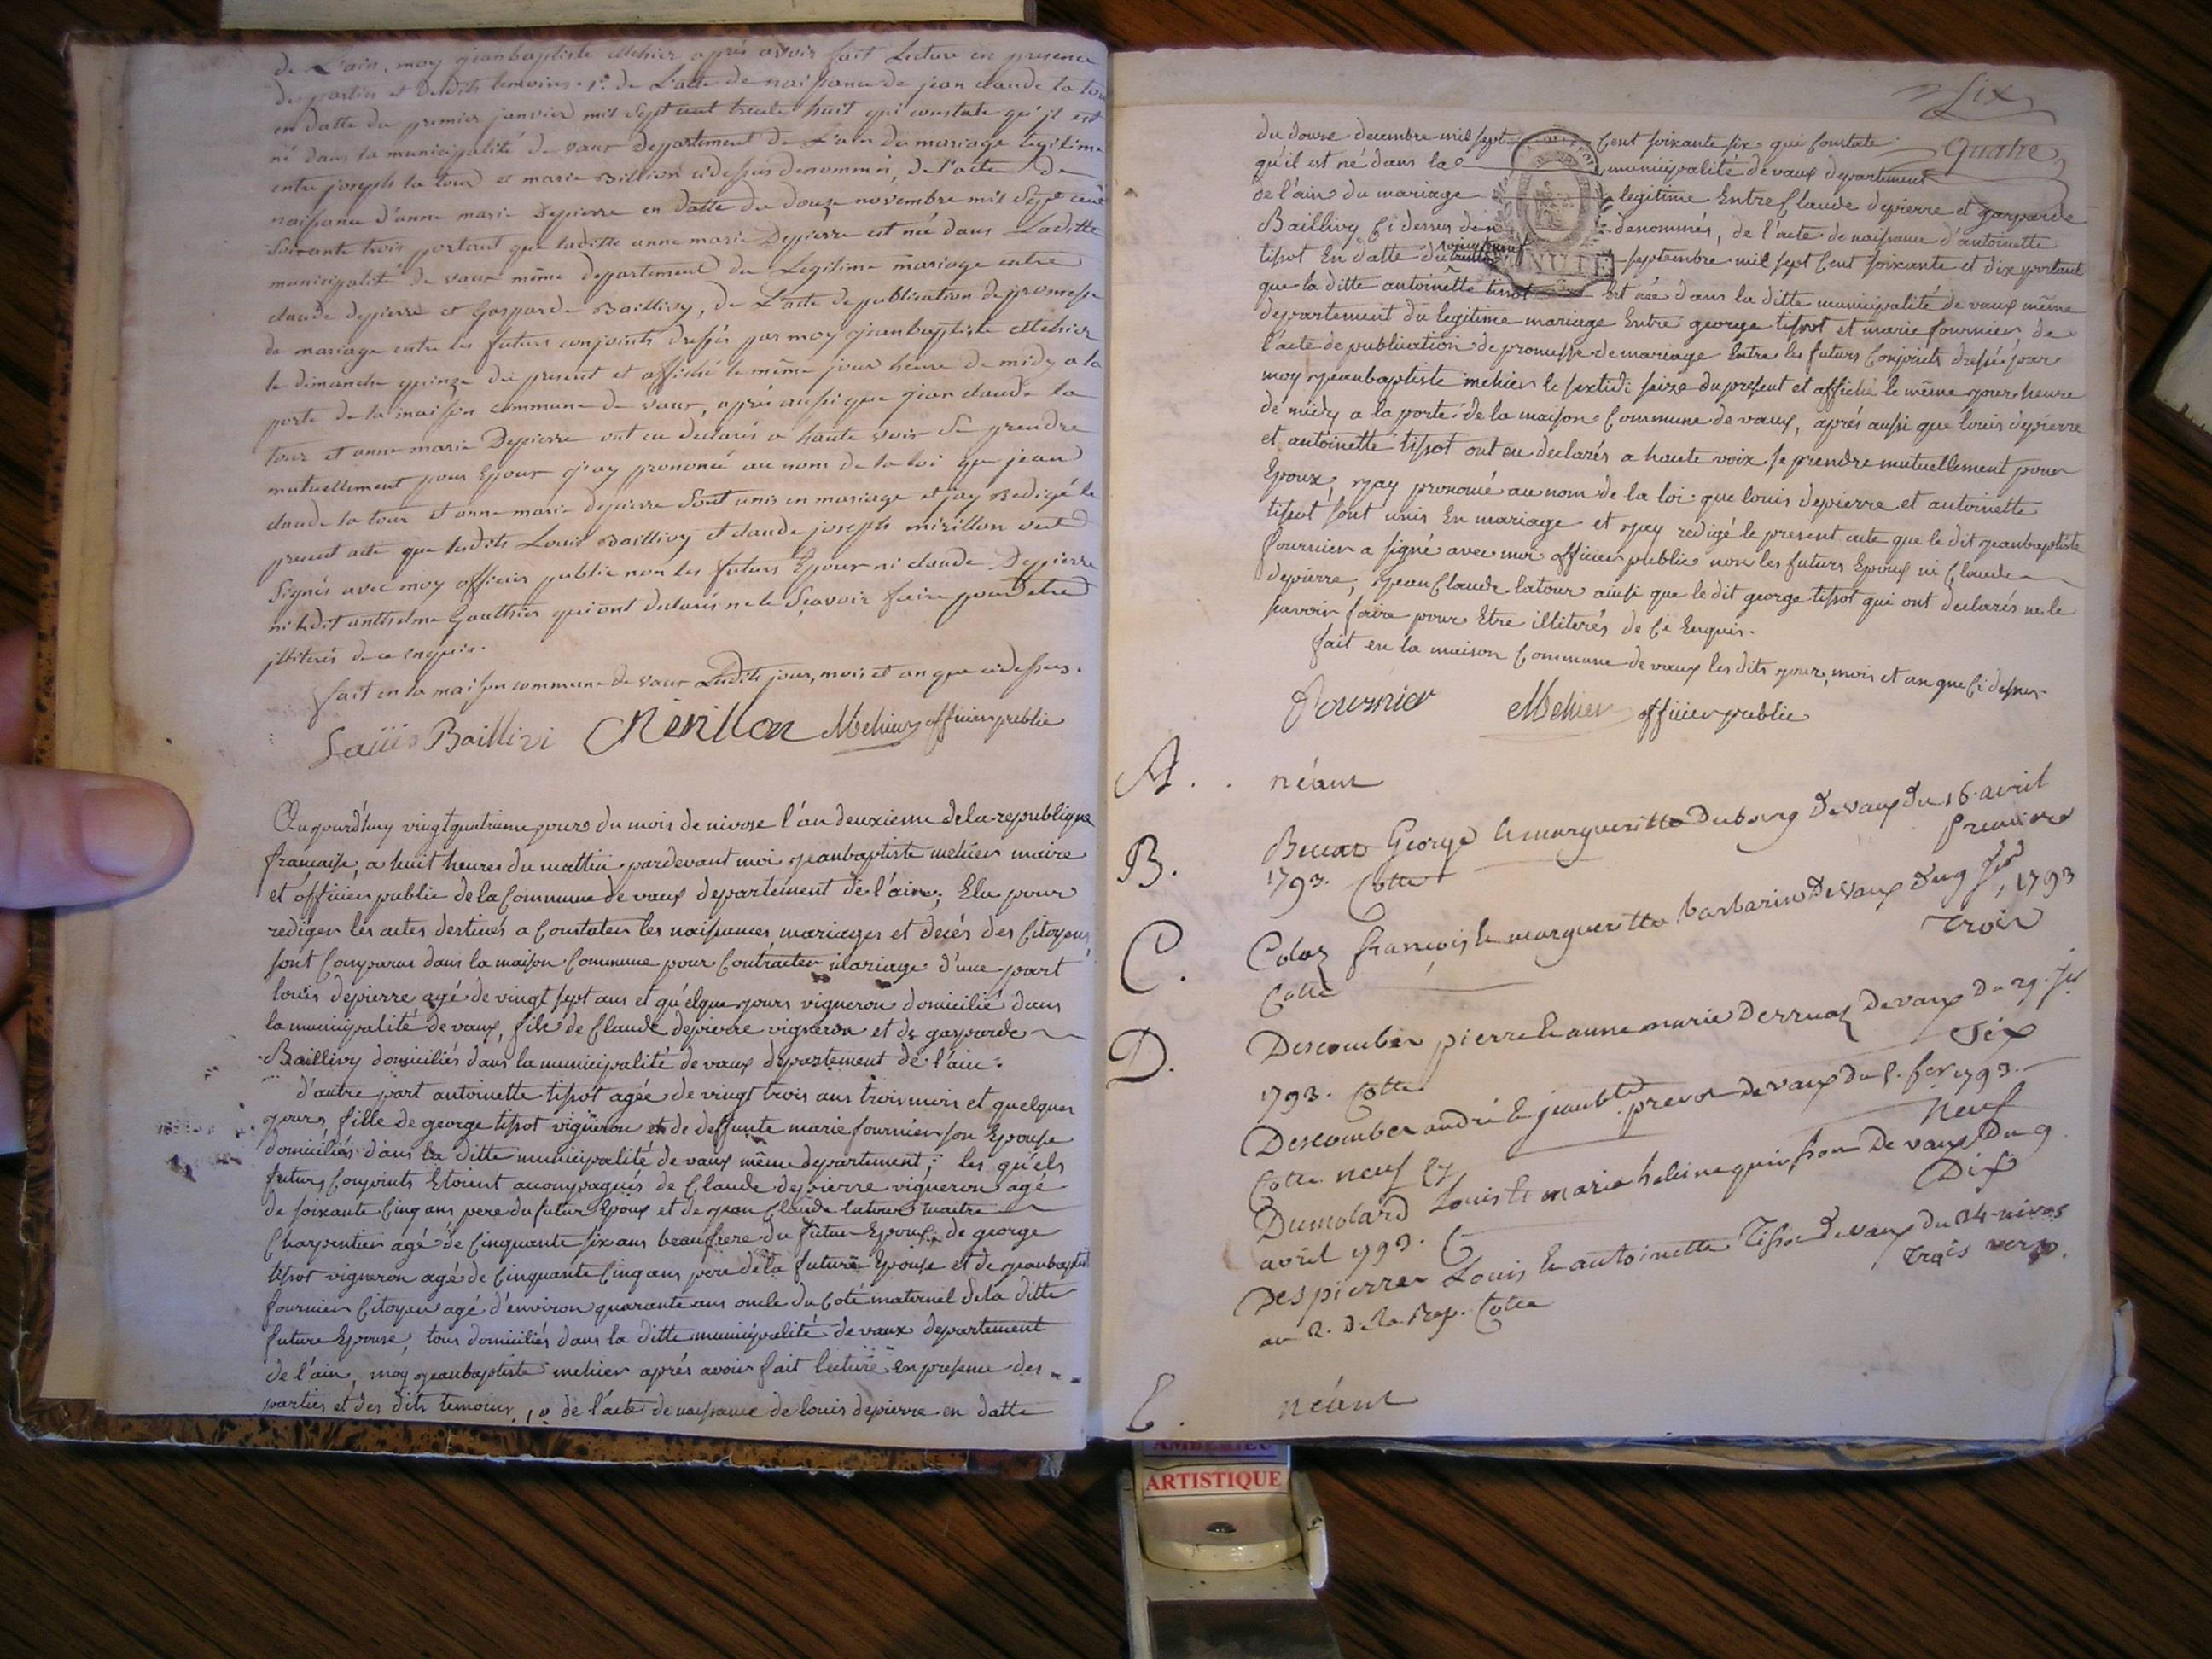 de L'ain, moy jeanbaptiste Mehier après avoir fait Lecture en presence
des parties et desdits temoins. 1º. de L'acte de naissance de jean claude la tour
en datte du premier janvier mil sept cent trente huit qui constate qu'il est
né dans la municipalité de vaux departement de L'ain du mariage legitime
entre joseph la tour et marie Billion cidessus denommés, de l'acte de
naissance d'anne marie Depierre en datte du douze novembre mil sept cent
soixante trois portant que laditte anne marie Depierre est née dans Laditte
municipalité de vaux même departement du Legitime mariage entre
claude depierre et Gasparde Baillivy, de L'acte de publication de promesse
de mariage entre les futurs conjoints dressés par moy jeanbaptiste Mehier
le dimanche quinze du present et affiché le même jour heure de midy a la
porte de la maison commune de vaux, après aussi que jean claude la
tour et anne marie Depierre ont eu declarés a haute voix se prendre
mutuellement pour Epoux j'ay prononcé au nom de la loi que jean
claude la tour et anne marie depierre sont unis en mariage et j'ay Redigé le
present acte que lesdits Louis Baillivy et claude joseph mirillon ont
signés avec moy officier public non les futurs Epoux ni claude Depierre
ni ledit anthelme Gauthier qui ont declarés ne le scavoir faire pour etre
jlliterés de ce enquis.
fait en la maison commune de vaux Lesdits jour, mois et an que cidessus.
Louis Baillivi Mirillon Mehier officier public
Aujourd'huy vingtquatrieme jours du mois de nivose l'an deuxieme de la republique
française, a huit heures du mattin pardevant moi jeanbaptiste mehier maire
et officier public de la Commune de vaux departement de l'ain, Elu pour
rediger les actes destinés a Constater les naissances mariages et decés des Citoyens,
sont Comparus dans la maison Commune pour Contracter mariage d'une part
louis depierre agé de vingt sept ans et quelques jours vigneron domicilié dans
la municipalité de vaux, fils de Claude depierre vigneron et de gasparde
Baillivy domiciliés dans la municipalité de vaux departement de l'ain:
d'autre part antoinette tissot agée de vingt trois ans trois mois et quelques
jours, fille de george tissot vigneron et de deffunte marie fournier son Epouse
domiciliés dans la ditte municipalité de vaux même departement; les quels
futurs Conjoints Etoient accompagnés de Claude depierre vigneron agé
de soixante Cinq ans pere du futur Epoux et de jean Claude latour maitre
Charpentier agé de Cinquante six ans beaufrere du futur Epoux, de george
tissot vigneron agé de Cinquante Cinq ans père de la future Epouse et de jeanbaptiste
fournier Citoyen agé d'environ quarante ans oncle du Coté maternel de la ditte
future Epouse, tous domiciliés dans la ditte municipalité de vaux departement
de l'ain, moy jeanbaptiste mehier après avoir fait lecture en presence des
parties et des dits temoins, 1º de l'acte de naissance de louis depierre en datte
Six
Quatre
du douze decembre mil sept Cent soixante six qui Constate
qu'il est né dans la municipalité de vaux departement
de l'ain du mariage legitime Entre Claude depierre et gasparde
Baillivy Ci dessus den denommés, de l'acte de naissance d'antoinette
tissot En datte du septembre mil sept Cent soixante et dix portant
NUTE
que la ditte antoinette tissot Est née dans la ditte municipalité de vaux même
departement du legitime mariage Entre george tissot et marie fournier, de
l'acte de publication de promesse de mariage Entre les futurs Conjoints dressé par
moy jeanbaptiste mehier le sextidi seize du present et affiché le même jour heure
de midy a la porte de la maison Commune de vaux, après aussi que louis depierre
et antoinette tissot ont eu declarés a haute voix se prendre mutuellement pour
Epoux, j'ay prononcé au nom de la loi que louis depierre et antoinette
tissot sont unis En mariage et j'ay redigé le present acte que le dit jeanbaptiste
fournier a signé avec moi officier public non les futurs Epoux ni Claude
depierre, jean Claude latour ainsi que le dit george tissot qui ont declarés ne le
savoir faire pour Etre illiterés de Ce Enquis.
fait en la maison Commune de vaux les dits jour, mois et an que Ci dessus
Fournier Mehier officier public
A. . néant
B. George & margueritte Dubourg De vaux du 16 avril
1793. Cotte premiere
C. Coloz françois & margueritte barbarin De vaux du 9 1793
Cotte trois
D. Descombes pierre & anne marie Derruaz De vaux du 29.
1793. Cotte Six
Descombes andré & jeanbte prevot De vaux du 5. fer 1793.
Cotte neuf Neuf
Dumolard Louis & marie helene De vaux Du 9
avril 1793. C Dix
Despierres Louis & antoinette Tissot De vaux du 24 nivos
an 2. de la Rep. Cotte trois verso.
E. néant
AMBERIEU
ARTISTIQUE